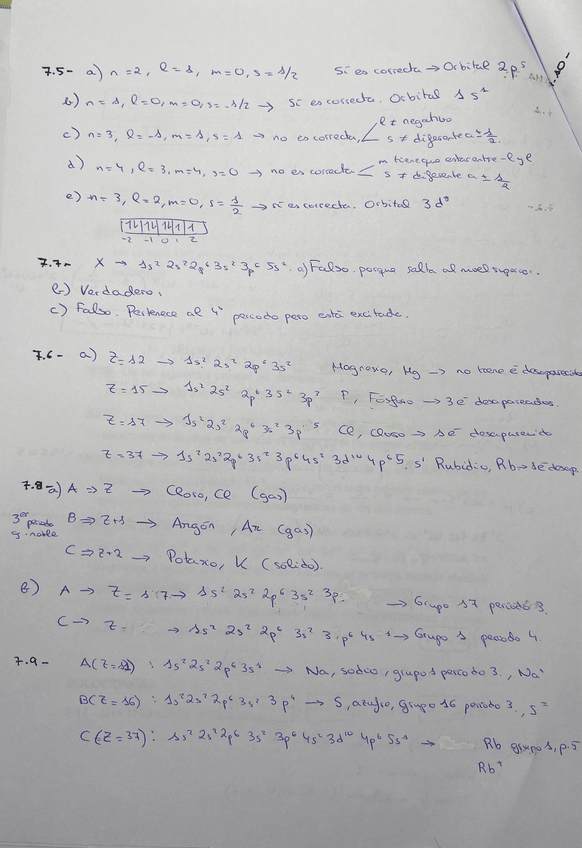 7.5- a) n=2, l=1, m=0, s=1/2 Sí es correcta → Orbital 2p⁵
b) n=1, l=0, m=0, s=-1/2 → Sí es correcta. Orbital 1s¹
c) n=3, l=-1, m=1, s=1 → no es correcta, l ≠ negativo
s ≠ diferente a ±1/2.
d) n=4, l=3, m=4, s=0 → no es correcta m tiene que estar entre -l y l
s ≠ diferente a ±1/2
e) n=3, l=2, m=0, s=1/2 → sí es correcta. Orbital 3d⁸
-2 -1 0 1 2
7.7- X → 1s² 2s² 2p⁶ 3s² 3p⁶ 5s². a) Falso porque salta al nivel
b) Verdadero.
c) Falso. Pertenece al 4º periodo pero está excitado.
7.6- a) Z=12 → 1s² 2s² 2p⁶ 3s² Magnesio, Mg → no tiene é
Z=15 → 1s² 2s² 2p⁶ 3s² 3p³ P, Fósforo → 3 é desapareados.
Z=17 → 1s² 2s² 2p⁶ 3s² 3p⁵ Cl, Cloro → 1 é
Z=37 → 1s² 2s² 2p⁶ 3s² 3p⁶ 4s² 3d¹⁰ 4p⁶ 5s¹ Rubidio, Rb → 1 é desap.
7.8- a) A ⇒ Z → Cloro, Cl (gas)
3er periodo B ⇒ Z+1 → Argón, Ar (gas)
g. noble
C ⇒ Z+2 → Potasio, K (sólido).
b) A → Z=17 → 1s² 2s² 2p⁶ 3s² 3p → Grupo 17 periodo 3.
C → Z= → 1s² 2s² 2p⁶ 3s² 3p⁶ 4s¹ → Grupo 1 periodo 4.
7.9- A(Z=11) : 1s² 2s² 2p⁶ 3s¹ → Na, sodio, grupo 1 periodo 3., Na⁺
B(Z=16) : 1s² 2s² 2p⁶ 3s² 3p⁴ → S, azufre, grupo 16 periodo 3., S⁼
C(Z=37) : 1s² 2s² 2p⁶ 3s² 3p⁶ 4s² 3d¹⁰ 4p⁶ 5s¹ → Rb grupo 1, p.5
Rb⁺